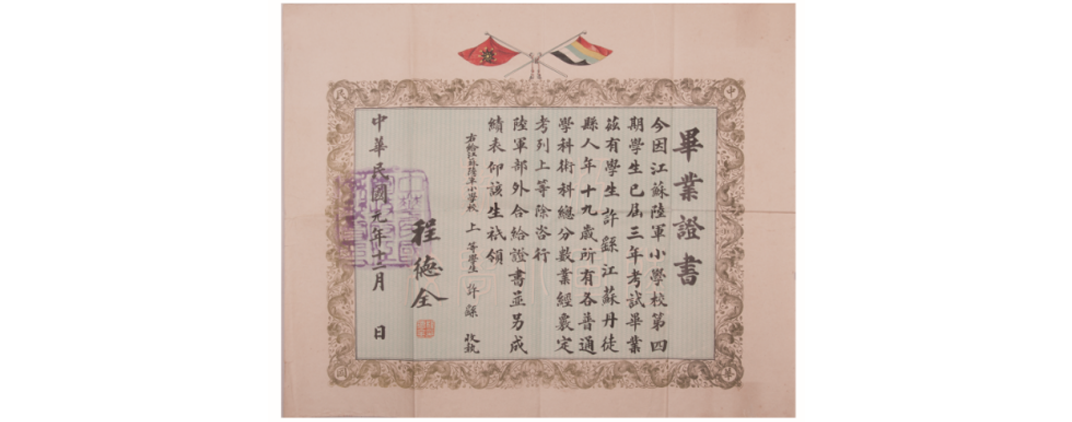 畢業證書
今因江蘇陸軍小學校第四
期學生已屆三年考試畢業
茲有學生許繇江蘇丹徒
縣人年十九歲所有各普通
學科術科總分數業經覈定
考列上等除咨行
陸軍部外合給證書並另成
績表仰該生祇領
右給江蘇陸軍小學校上等學生許繇收執
程德全
中華民國元年十二月 日